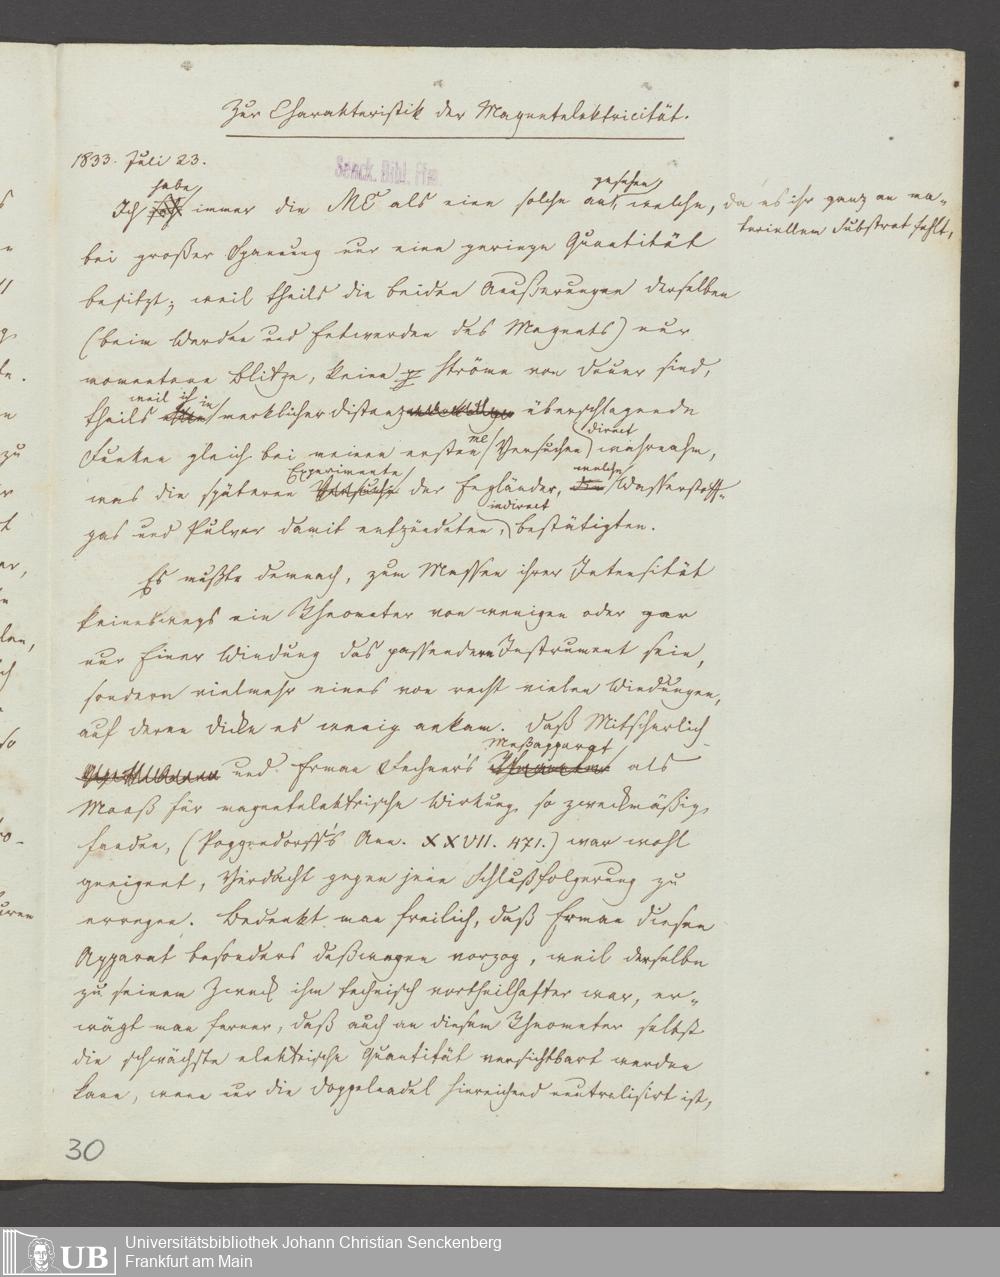 Zur Charakteristik der Magnetelektricität.
1833. Juli 23.
Senck. Bibl. Ffm.
habe gesehen
Ich immer die ME als eine solche an, welche, da es ihr ganz an ma-
teriellem Substrat fehlt,
bei großer Spannung nur eine geringe Quantität
besitzt; weil theils die beiden Aeußerungen derselben
(beim Werden und Entwerden des Magnets) nur
momentane Blitze, keine Ströme von Dauer sind,
weil ich in
theils merklicher Distanz überschlagende
me direct
Funken gleich bei meinen ersten Versuchen wahrnahm,
Experimente welche
was die späteren Versuche der Engländer, die Wasserstoff-
indirect
gas und Pulver damit entzündeten, bestätigten.
Es mußte demnach, zum Messen ihrer Intensität
keineswegs ein Rheometer von wenigen oder gar
nur Einer Windung das passendern Instrument sein,
sondern vielmehr eines von recht vielen Windungen,
auf deren Dicke es wenig ankam. Daß Mitscherlich
Meßapparat
und Erman Fechner's als
Maaß für magnetelektrische Wirkung so zweckmäßig
fanden, (Poggendorff's Ann. XXVII. 471.) war wohl
geeignet, Verdacht gegen jene Schlußfolgerung zu
erregen. Bedenkt man freilich, daß Erman diesen
Apparat besonders deßwegen vorzog, weil derselbe
zu seinem Zweck ihm technisch vortheilhafter war, er-
wägt man ferner, daß auch an diesem Rheometer selbst
die schwächste elektrische Quantität versichtbart werden
kann, wenn nur die Doppelnadel hinreichend neutralisirt ist,
30
UB
Universitätsbibliothek Johann Christian Senckenberg
Frankfurt am Main